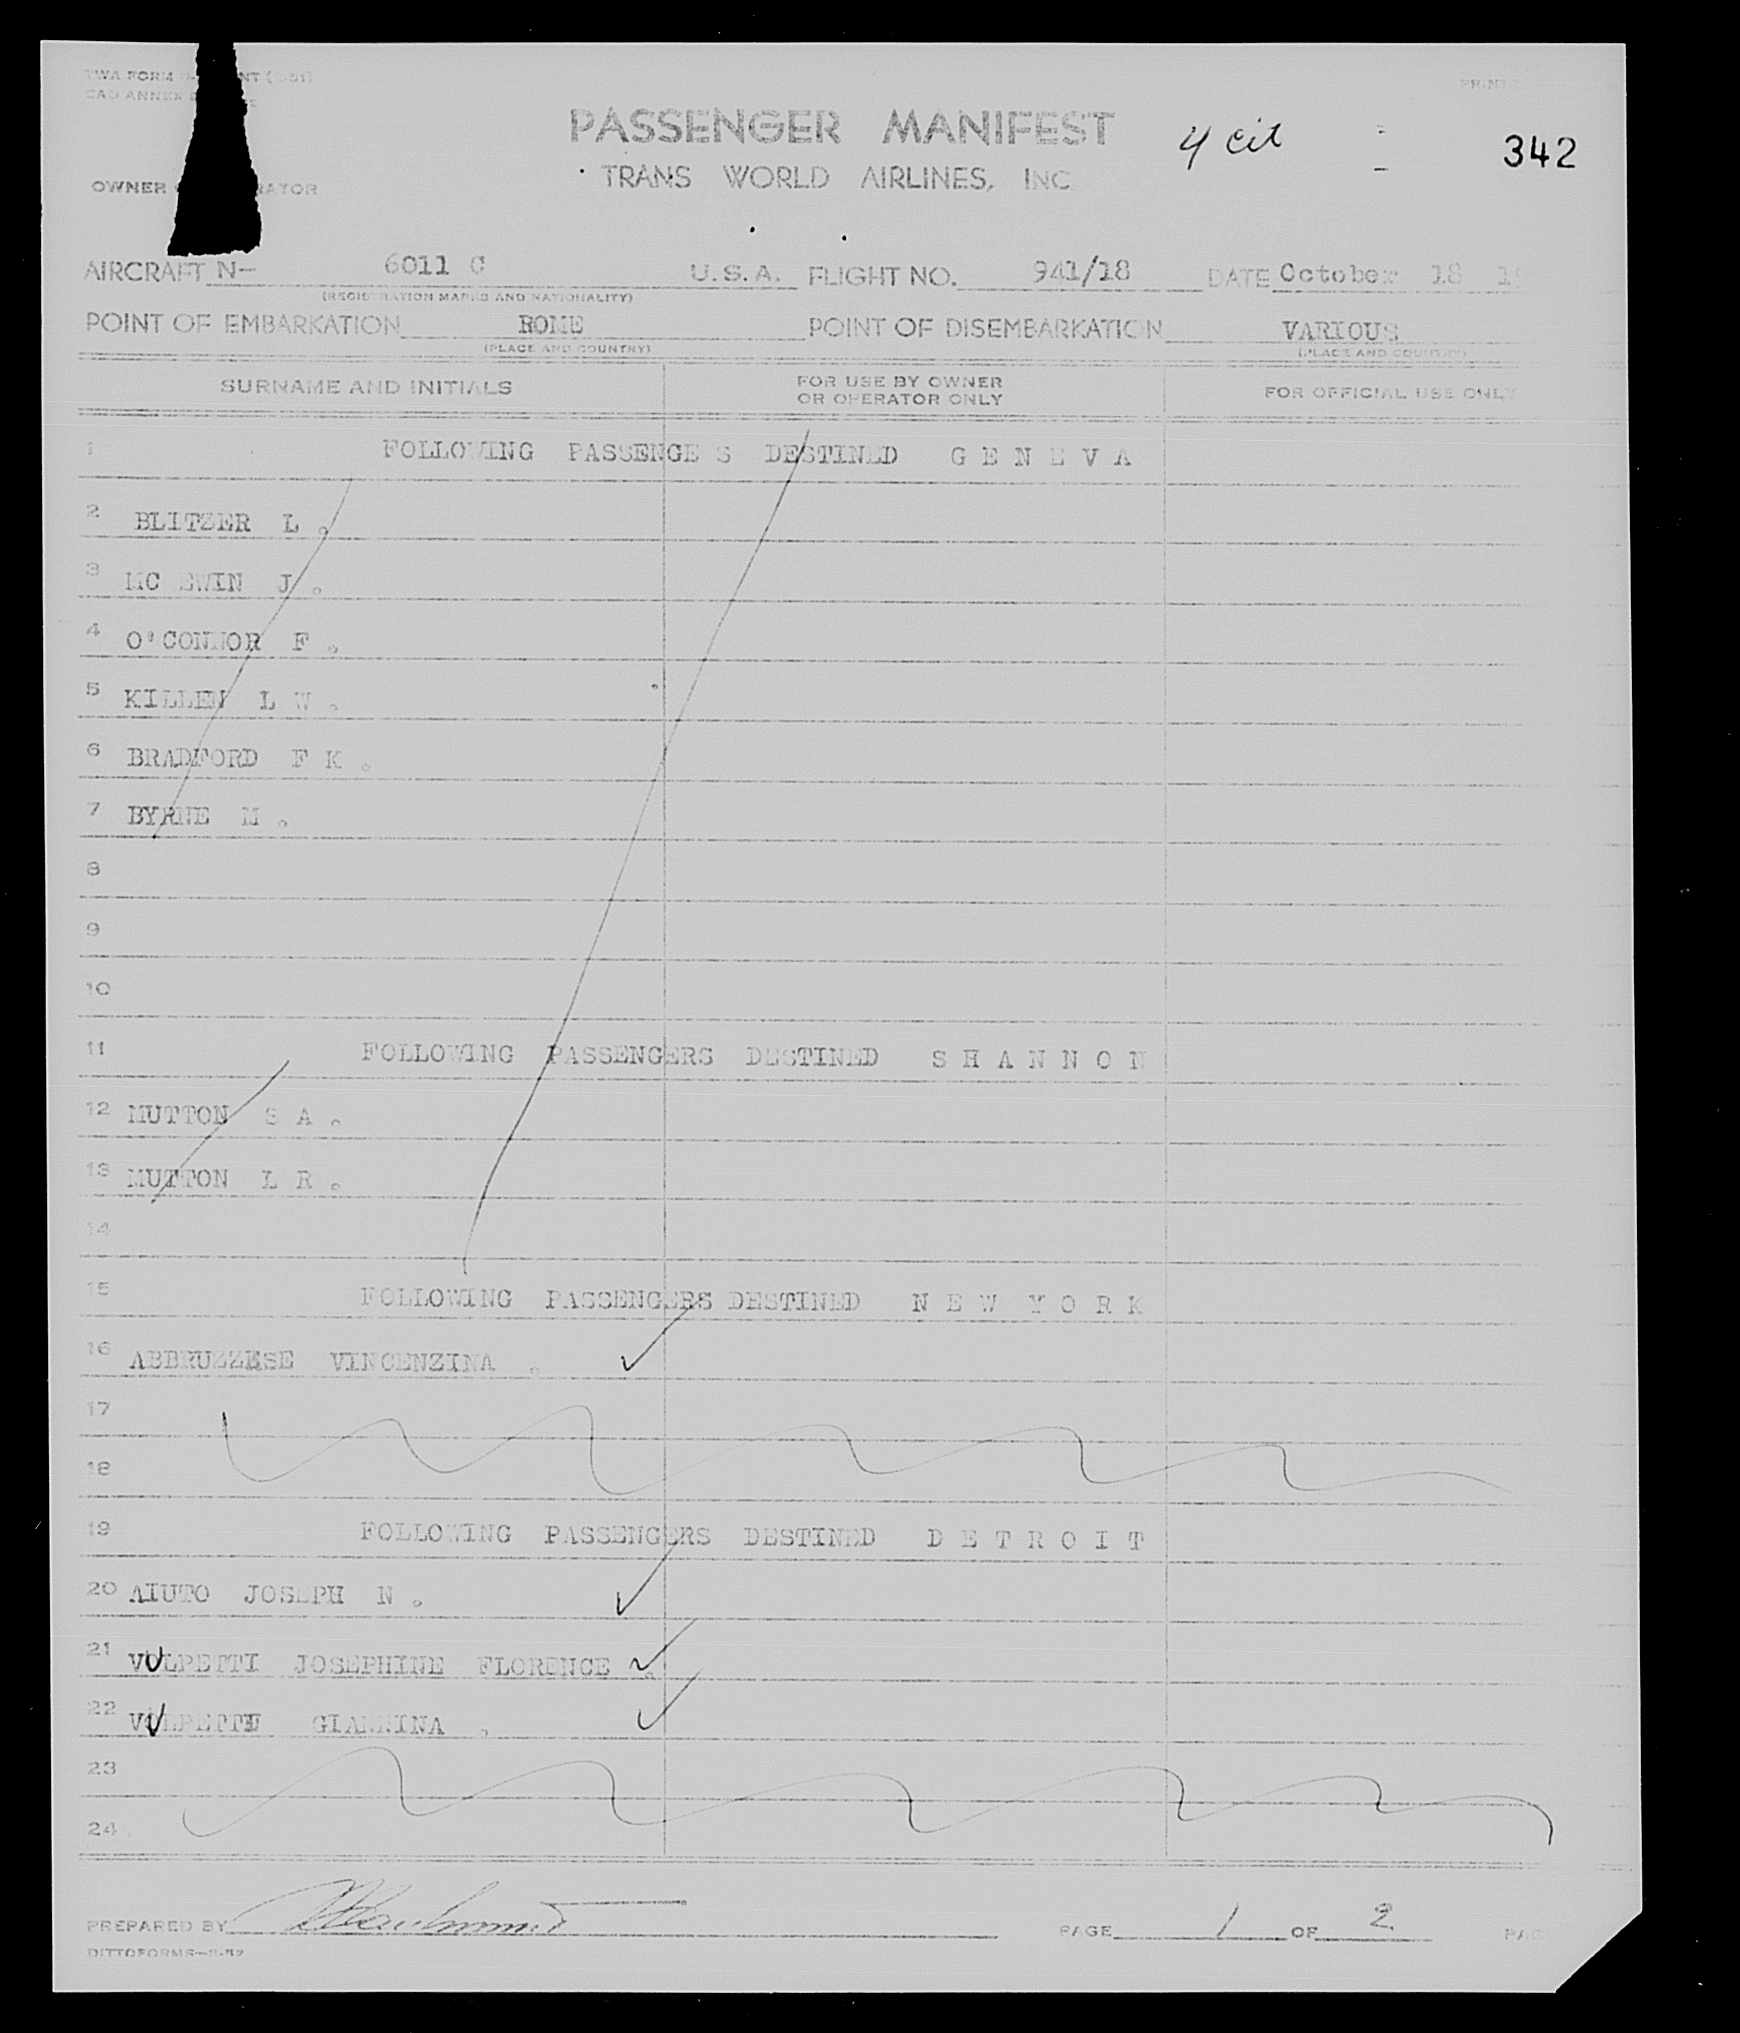 TWA FORM
PRINT
CAO ANNEX
PASSENGER MANIFEST
4 cit
342
TRANS WORLD AIRLINES, INC
OWNER
AIRCRAFT N- 6011 C U.S.A. FLIGHT NO. 941/18 DATE October 18 19
(REGISTRATION MARKS AND NATIONALITY)
POINT OF EMBARKATION ROME POINT OF DISEMBARKATION VARIOUS
(PLACE AND COUNTRY) (PLACE AND COUNTRY)
SURNAME AND INITIALS FOR USE BY OWNER OR OPERATOR ONLY FOR OFFICIAL USE ONLY
1 FOLLOWING PASSENGE S DESTINED G E N E V A
2 BLITZER L .
3 MC EWIN J .
4 O'CONNOR F .
5 KILLEN L W .
6 BRADFORD F K .
7 BYRNE M .
8
9
10
11 FOLLOWING PASSENGERS DESTINED S H A N N O N
12 MUTTON S A .
13 MUTTON L R .
14
15 FOLLOWING PASSENGERS DESTINED N E W Y O R K
16 ABBRUZZESE VINCENZINA .
17
18
19 FOLLOWING PASSENGERS DESTINED D E T R O I T
20 AIUTO JOSEPH N .
21 VOLPETTI JOSEPHINE FLORENCE .
22 GIANNINA .
23
24
PREPARED BY PAGE 1 OF 2 PAG
DITTOFORMS